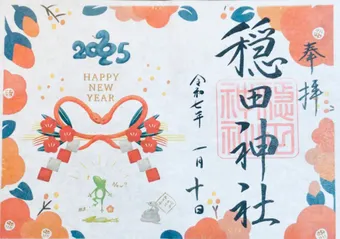 奉拝
穏田神社
穏田神社
令和七年 一月十日
2025
HAPPY
NEW YEAR